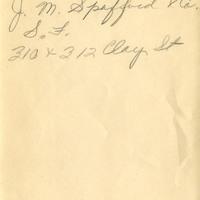 J. M. Spafford Co.
S. F.
310 & 312 Clay St